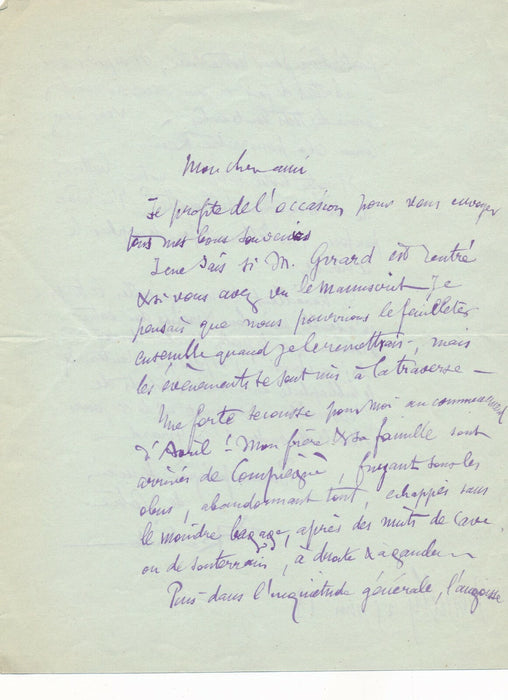 Mon cher ami
Je profite de l'occasion pour vous envoyer
tous mes bons souvenirs
Je ne sais si M. Girard est rentré
& si vous avez vu le manuscrit. Je
pensais que nous pourrions le feuilleter
ensemble quand je le remettrais, mais
les évènements se sont mis à la traverse —
Une forte secousse pour moi au commencement
d'Avril ! Mon frère & sa famille sont
arrivés de Compiègne, fuyant sous les
obus, abandonnant tout, echappés sans
le moindre bagage, après des nuits de cave
ou de souterrain, à droite & à gauche
Puis dans l'inquiétude générale, l'angoisse